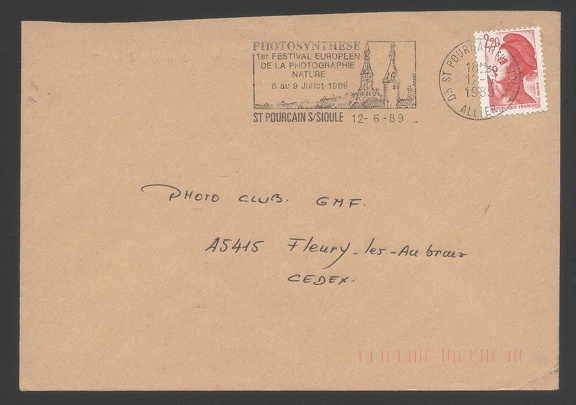 PHOTOSYNTHESE
1er FESTIVAL EUROPEEN
DE LA PHOTOGRAPHIE
NATURE
5 au 9 Juillet 1989
ST POURCAIN S/SIOULE 12-6-89
03 ST POURCAIN
1989
ALLIER
2,20
PHOTO CLUB. GMF.
45415 Fleury-les-Aubrais
CEDEX.